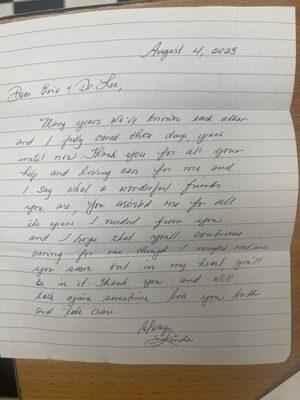 August 4, 2023
Dear Eric & Dr. Lee,
Many years we've known each other
and I fully cared those days, years
until now. Thank you for all your
help and loving care for me and
I say what a wonderful friends
you are, you assisted me for all
the years I needed from you
and I hope that you'll continue
caring for me though I might not see
you soon but in my heart, you'll
be in it. Thank you and will
talk again sometime, love you both
and take care.
Always,
Linda